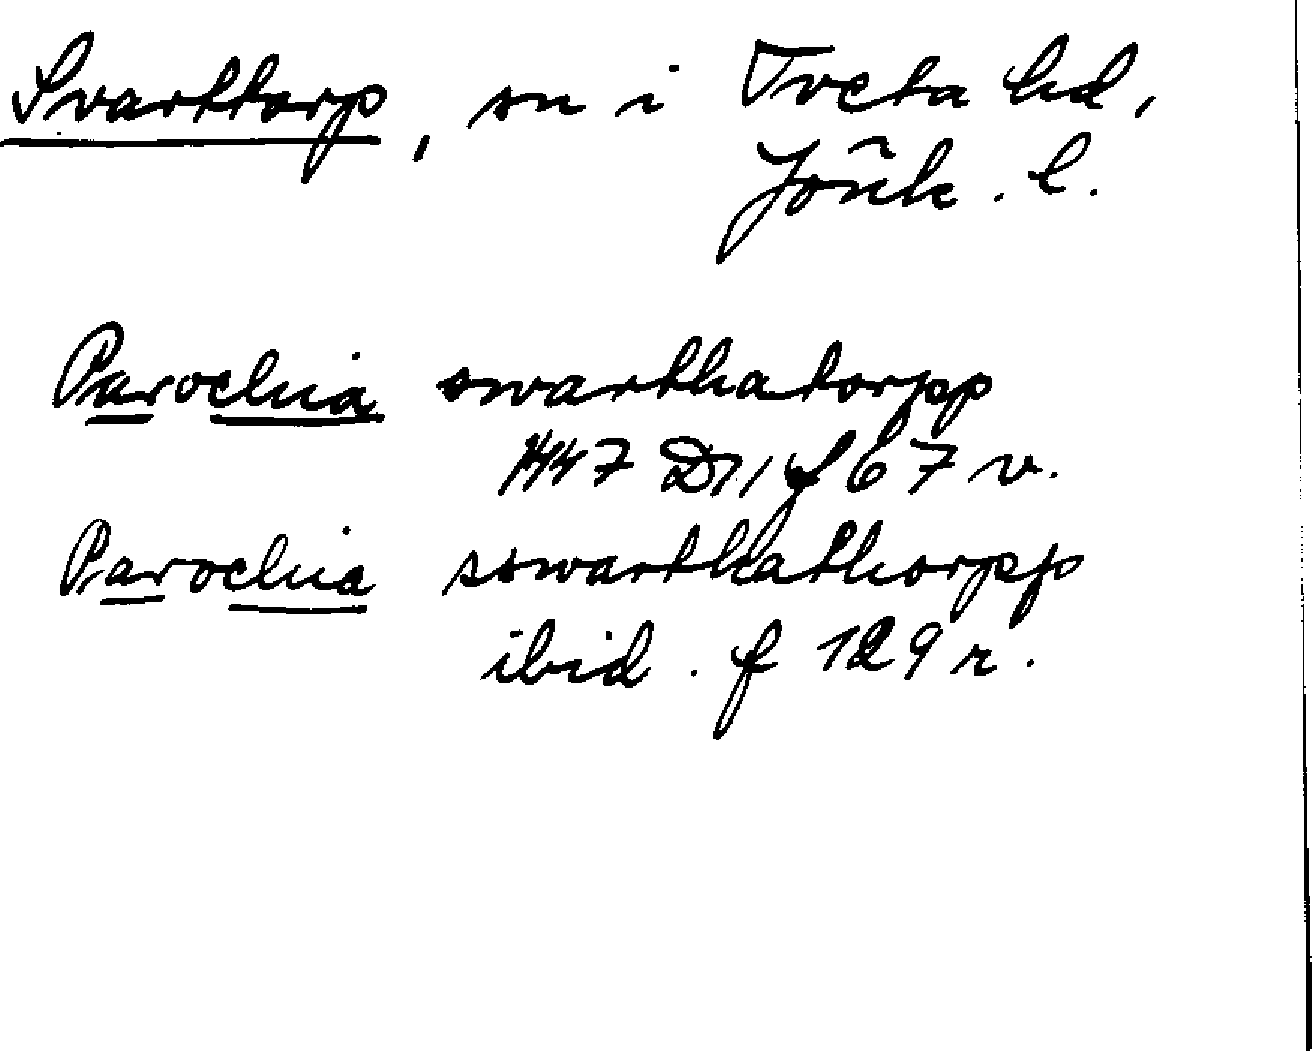 Svarttorp, sn i Tveta hd,
Jön̄k. l.
Parochia swarthatorpp
1447 D11 f 67 v.
Parochia sswarthathorpp
ibid. f 129 r.